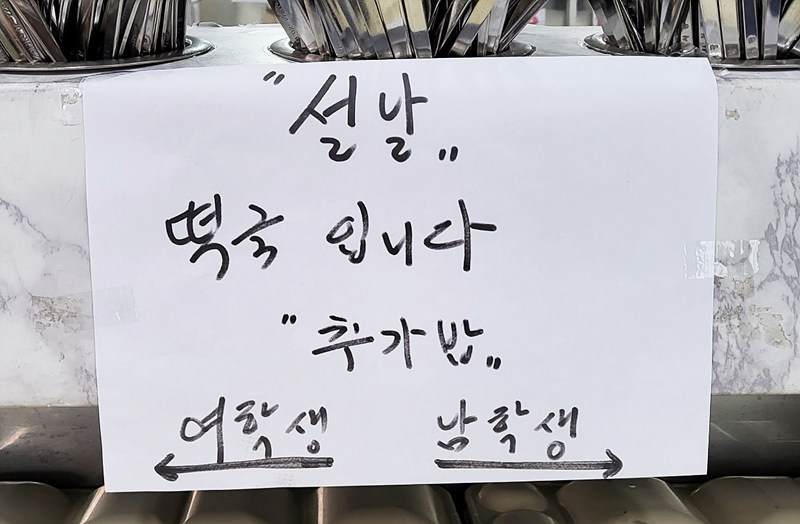 "설날"
떡국 입니다
"추가밥"
여학생 남학생